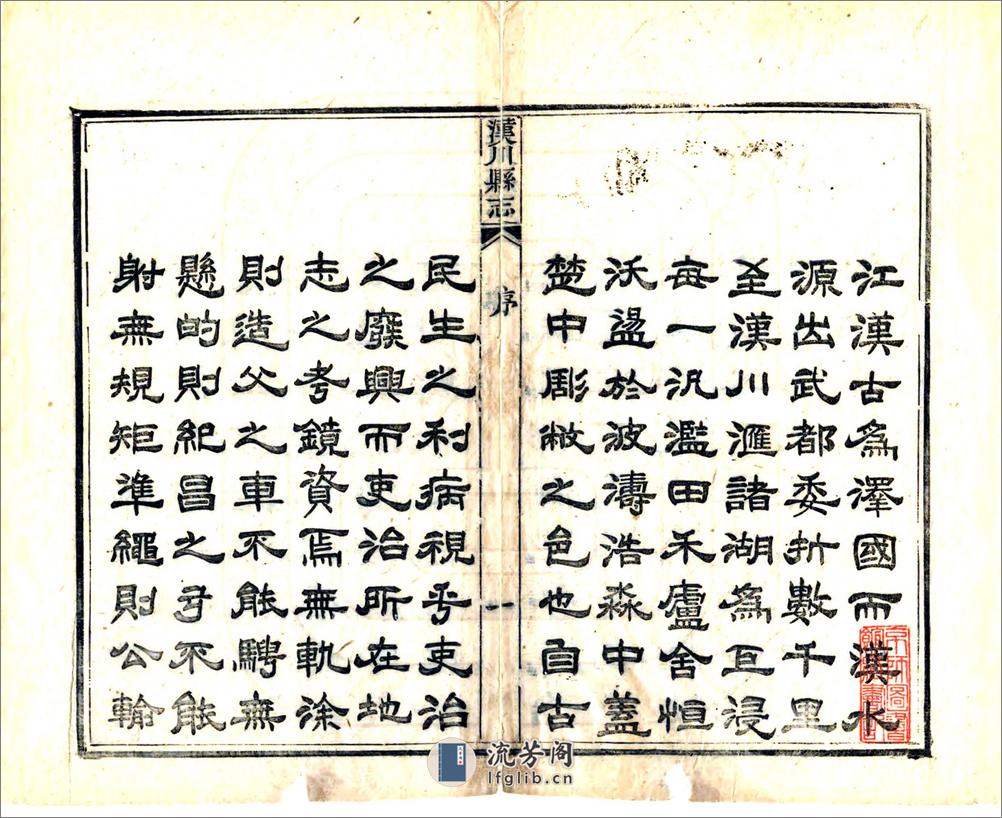 江漢古為澤國而漢水
源出武都委折數千里
至漢川滙諸湖為巨浸
每一汎濫田禾廬舍恒
沃盪於波濤浩淼中蓋
楚中彫敝之邑也自古
漢川縣志
序
一
民生之利病視乎吏治
之廢興而吏治所在地
志之考鏡資焉無軌涂
則造父之車不能騁無
懸的則紀昌之弓不能
射無規矩準繩則公輸
流芳阁
lfglib.cn